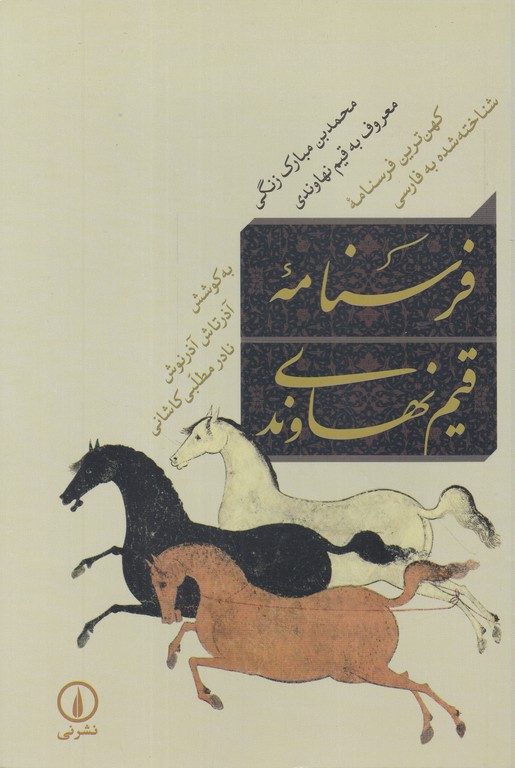 محمدبن مبارک زنگی
معروف به قیم نهاوندی
کهن‌ترین فرسنامهٔ
شناخته‌شده به فارسی
فرسنامهٔ
قیم نهاوندی
به کوشش
آذرتاش آذرنوش
نادر مطلّبی کاشانی
نشرنی